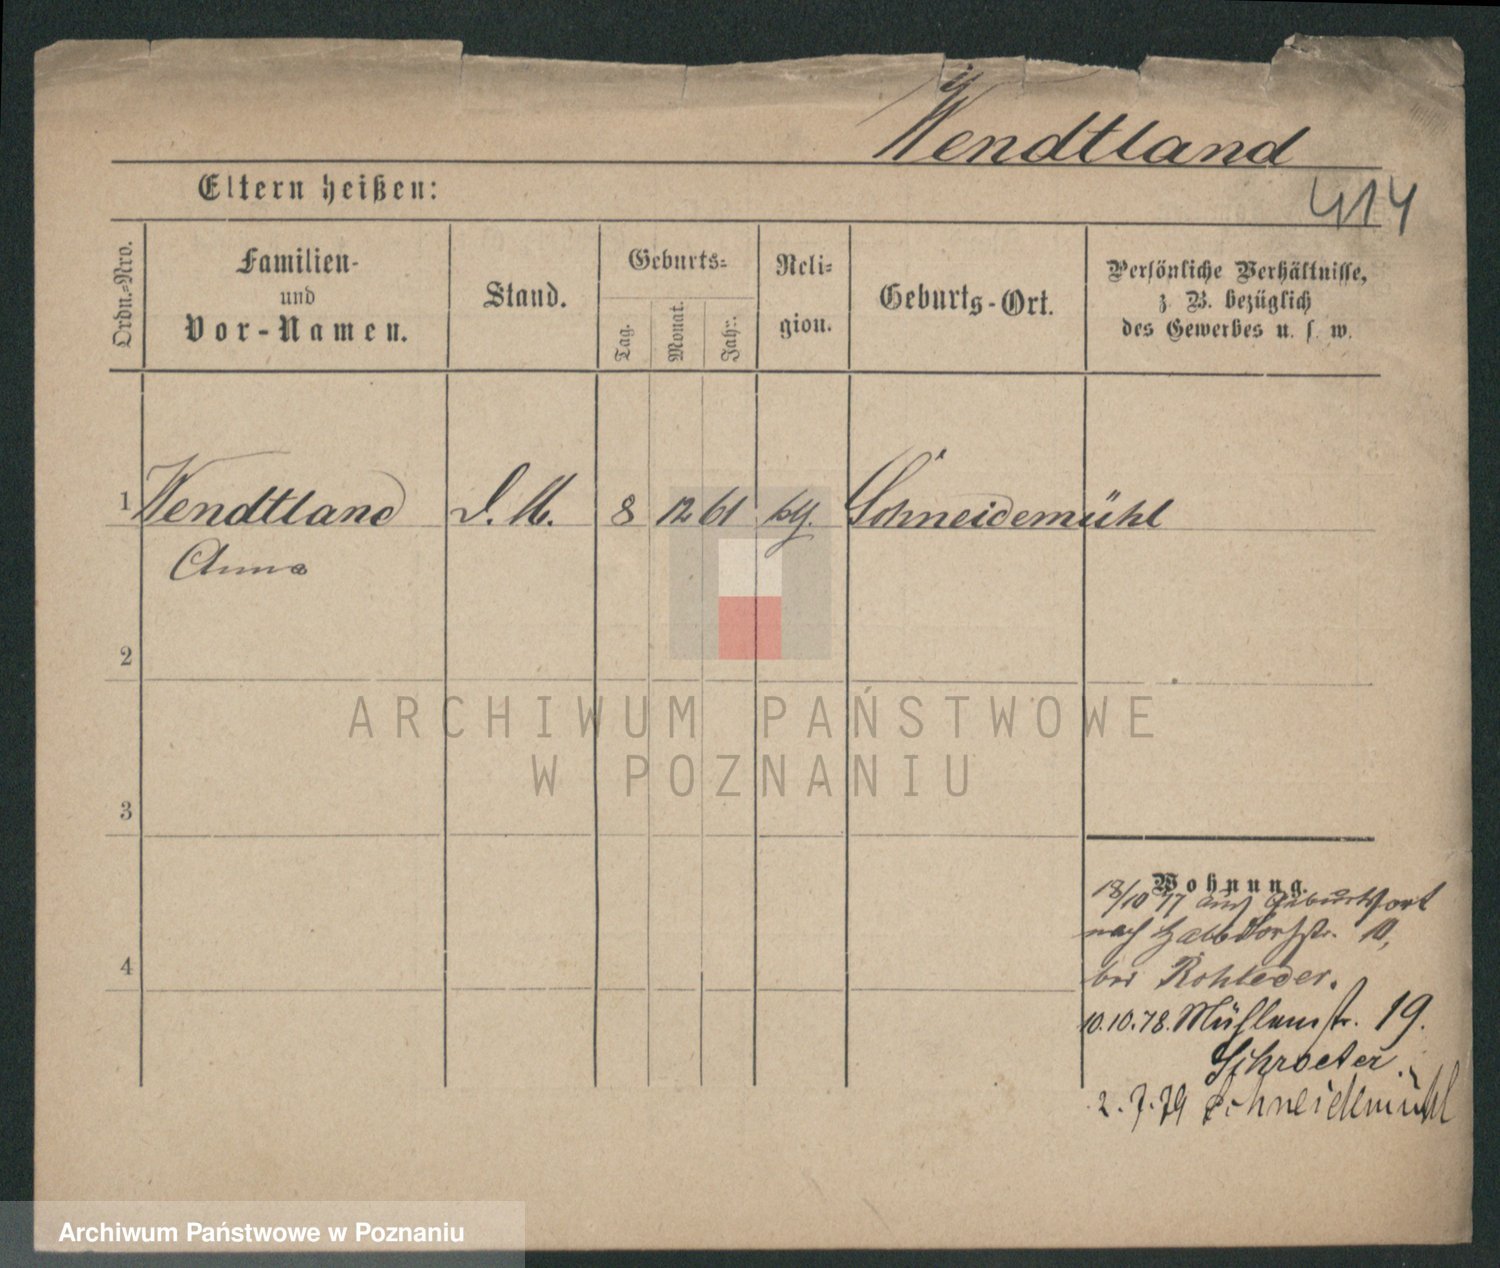 Wendtland
414
Eltern heißen:
Ordn.-Nro.
Familien-
und
Vor-Namen.
Stand.
Geburts-
Tag.
Monat.
Jahr.
Reli-
gion.
Geburts-Ort.
Persönliche Verhältnisse,
z. B. bezüglich
des Gewerbes u. s. w.
1 Wendtland D. M. 8 12 61 Schneidemühl
Anna
2
3
4
Wohnung.
13/10 77 aus Geburtsort
nach Halbdorfstr. 10,
bei Rohleder.
10.10.78. Mühlenstr. 19.
Schroeter.
2.7.79 Schneidemühl
ARCHIWUM PAŃSTWOWE
W POZNANIU
Archiwum Państwowe w Poznaniu